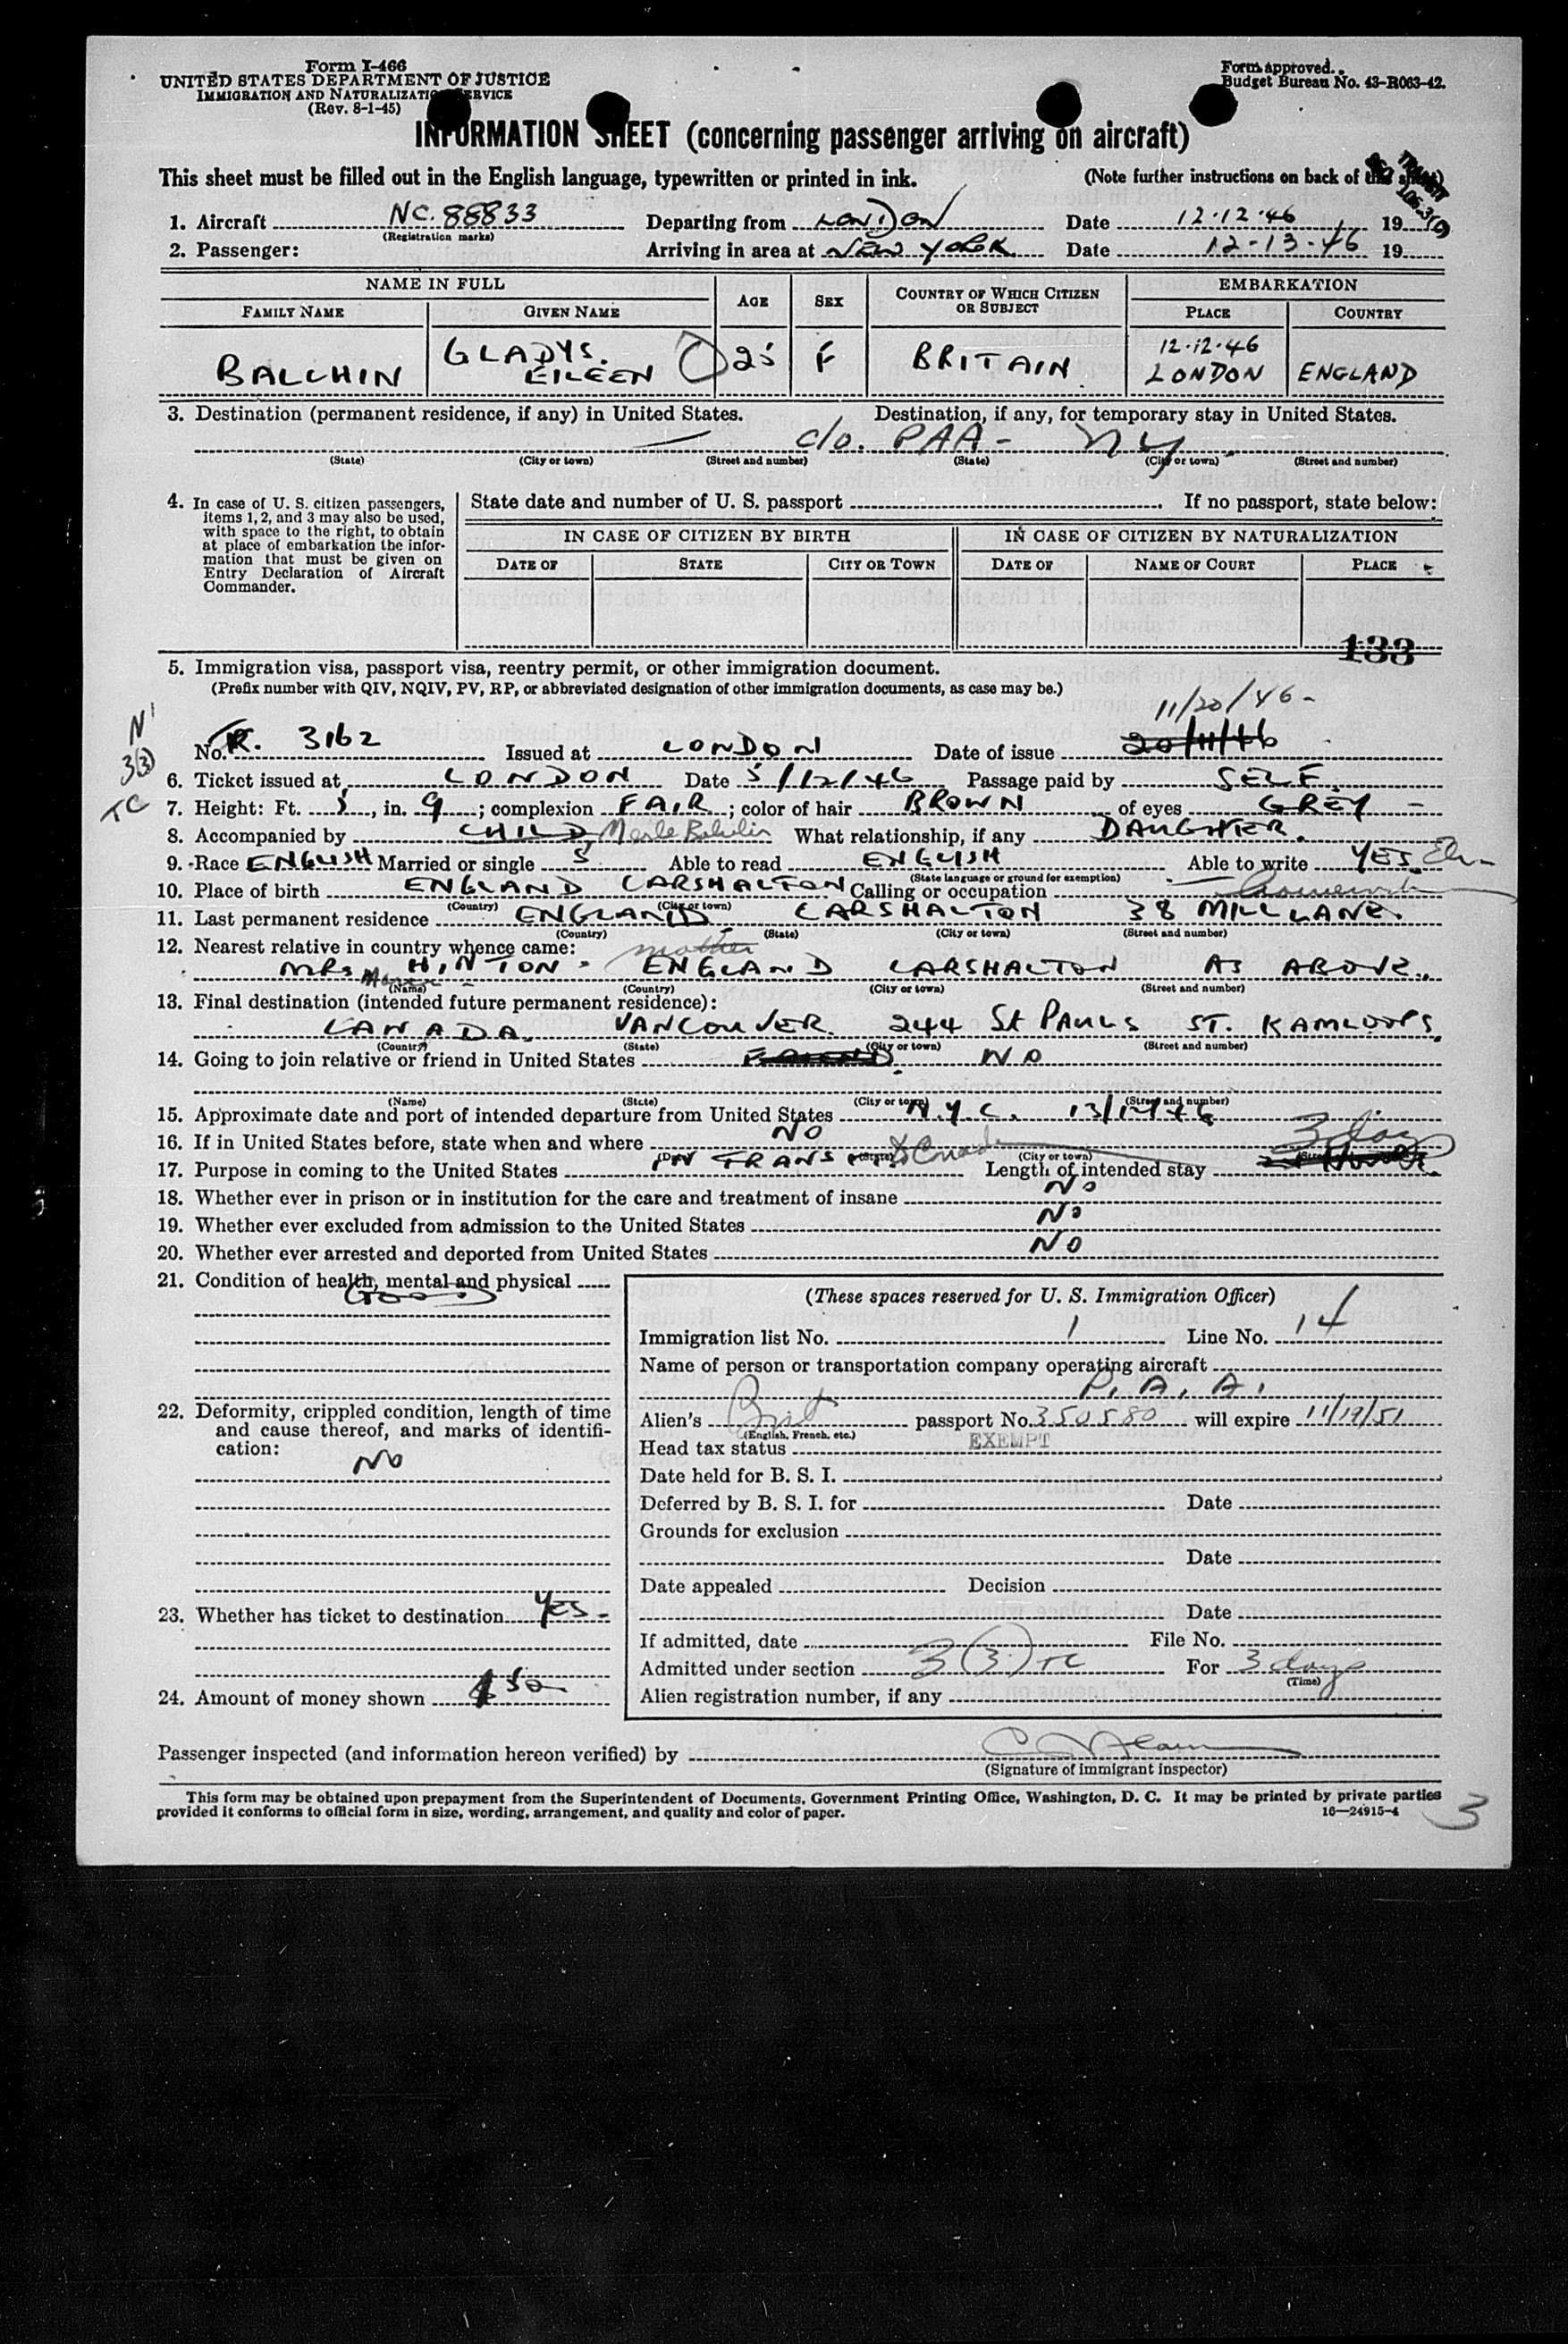 Form I-466
UNITED STATES DEPARTMENT OF JUSTICE
IMMIGRATION AND NATURALIZATION SERVICE
(Rev. 8-1-45)
Form approved.
Budget Bureau No. 43-R063-42.
INFORMATION SHEET (concerning passenger arriving on aircraft)
This sheet must be filled out in the English language, typewritten or printed in ink. (Note further instructions on back of this sheet)
TRANSIT
1. Aircraft NC. 88833 Departing from LONDON Date 12.12.46 19
(Registration marks)
2. Passenger: Arriving in area at NEW YORK Date 12-13-46 19
NAME IN FULL AGE SEX COUNTRY OF WHICH CITIZEN OR SUBJECT EMBARKATION
FAMILY NAME GIVEN NAME PLACE COUNTRY
BALCHIN GLADYS. EILEEN 25 F BRITAIN 12.12.46 LONDON ENGLAND
3. Destination (permanent residence, if any) in United States. Destination, if any, for temporary stay in United States.
— c/o. PAA - NY.
(State) (City or town) (Street and number) (State) (City or town) (Street and number)
4. In case of U. S. citizen passengers, items 1, 2, and 3 may also be used, with space to the right, to obtain at place of embarkation the information that must be given on Entry Declaration of Aircraft Commander.
State date and number of U. S. passport If no passport, state below:
IN CASE OF CITIZEN BY BIRTH IN CASE OF CITIZEN BY NATURALIZATION
DATE OF STATE CITY OR TOWN DATE OF NAME OF COURT PLACE
133
5. Immigration visa, passport visa, reentry permit, or other immigration document.
(Prefix number with QIV, NQIV, PV, RP, or abbreviated designation of other immigration documents, as case may be.)
11/20/46-
N'
3(3)
TC
No. TR. 3162 Issued at LONDON Date of issue 20/11/46
6. Ticket issued at LONDON Date 5/12/46 Passage paid by SELF.
7. Height: Ft. 5, in. 9; complexion FAIR; color of hair BROWN of eyes GREY -
8. Accompanied by CHILD Merle Balchin What relationship, if any DAUGHTER.
9. Race ENGLISH Married or single S Able to read ENGLISH Able to write YES
(State language or ground for exemption)
10. Place of birth ENGLAND CARSHALTON Calling or occupation
(Country) (City or town)
11. Last permanent residence ENGLAND CARSHALTON 38 MILL LANE.
(Country) (State) (City or town) (Street and number)
12. Nearest relative in country whence came: mother
MRS HINTON - ENGLAND CARSHALTON AS ABOVE.
(Name) (Country) (City or town) (Street and number)
13. Final destination (intended future permanent residence):
CANADA. VANCOUVER. 244 St PAULS ST. KAMLOOPS.
(Country) (State) (City or town) (Street and number)
14. Going to join relative or friend in United States NO
(Name) (State) (City or town) (Street and number)
15. Approximate date and port of intended departure from United States N.Y.C. 13/12/46
16. If in United States before, state when and where NO
(Date) (State) (City or town) (Street and number)
17. Purpose in coming to the United States IN TRANSIT to Canada Length of intended stay 3 days
18. Whether ever in prison or in institution for the care and treatment of insane NO
19. Whether ever excluded from admission to the United States NO
20. Whether ever arrested and deported from United States NO
21. Condition of health, mental and physical
GOOD
22. Deformity, crippled condition, length of time and cause thereof, and marks of identification:
NO
23. Whether has ticket to destination YES -
24. Amount of money shown $50
(These spaces reserved for U. S. Immigration Officer)
Immigration list No. 1 Line No. 14
Name of person or transportation company operating aircraft
P. A. A.
Alien's Brit passport No. 350580 will expire 11/19/51
(English, French, etc.)
Head tax status EXEMPT
Date held for B. S. I.
Deferred by B. S. I. for Date
Grounds for exclusion
Date
Date appealed Decision
Date
If admitted, date File No.
Admitted under section 3(3) TC For 3 days
(Time)
Alien registration number, if any
Passenger inspected (and information hereon verified) by
(Signature of immigrant inspector)
This form may be obtained upon prepayment from the Superintendent of Documents, Government Printing Office, Washington, D. C. It may be printed by private parties
provided it conforms to official form in size, wording, arrangement, and quality and color of paper. 16—24915-4
3